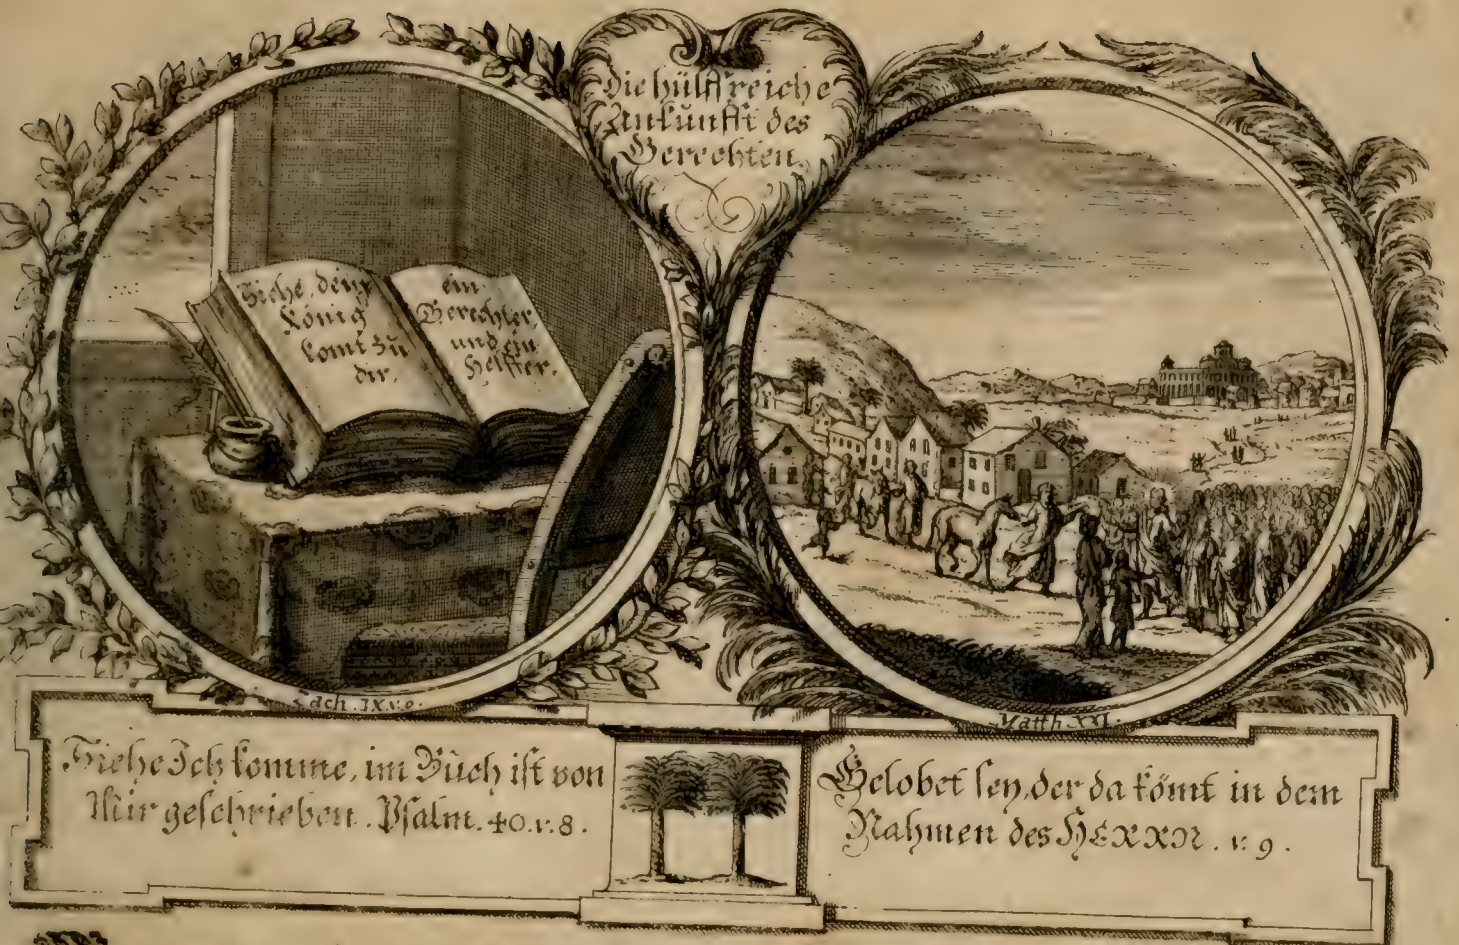 Die hülffreiche
Ankunfft des
Gerechten.
Siehe, dein
König
komt zu
dir,
ein
Gerechter,
und ein
Helffer.
Zach. IX. v. 9.
Matth XXI.
Siehe Ich komme, im Buch ist von
Mir geschrieben. Psalm. 40. v. 8.
Gelobet sey, der da kömt in dem
Nahmen des HERRN. v. 9.